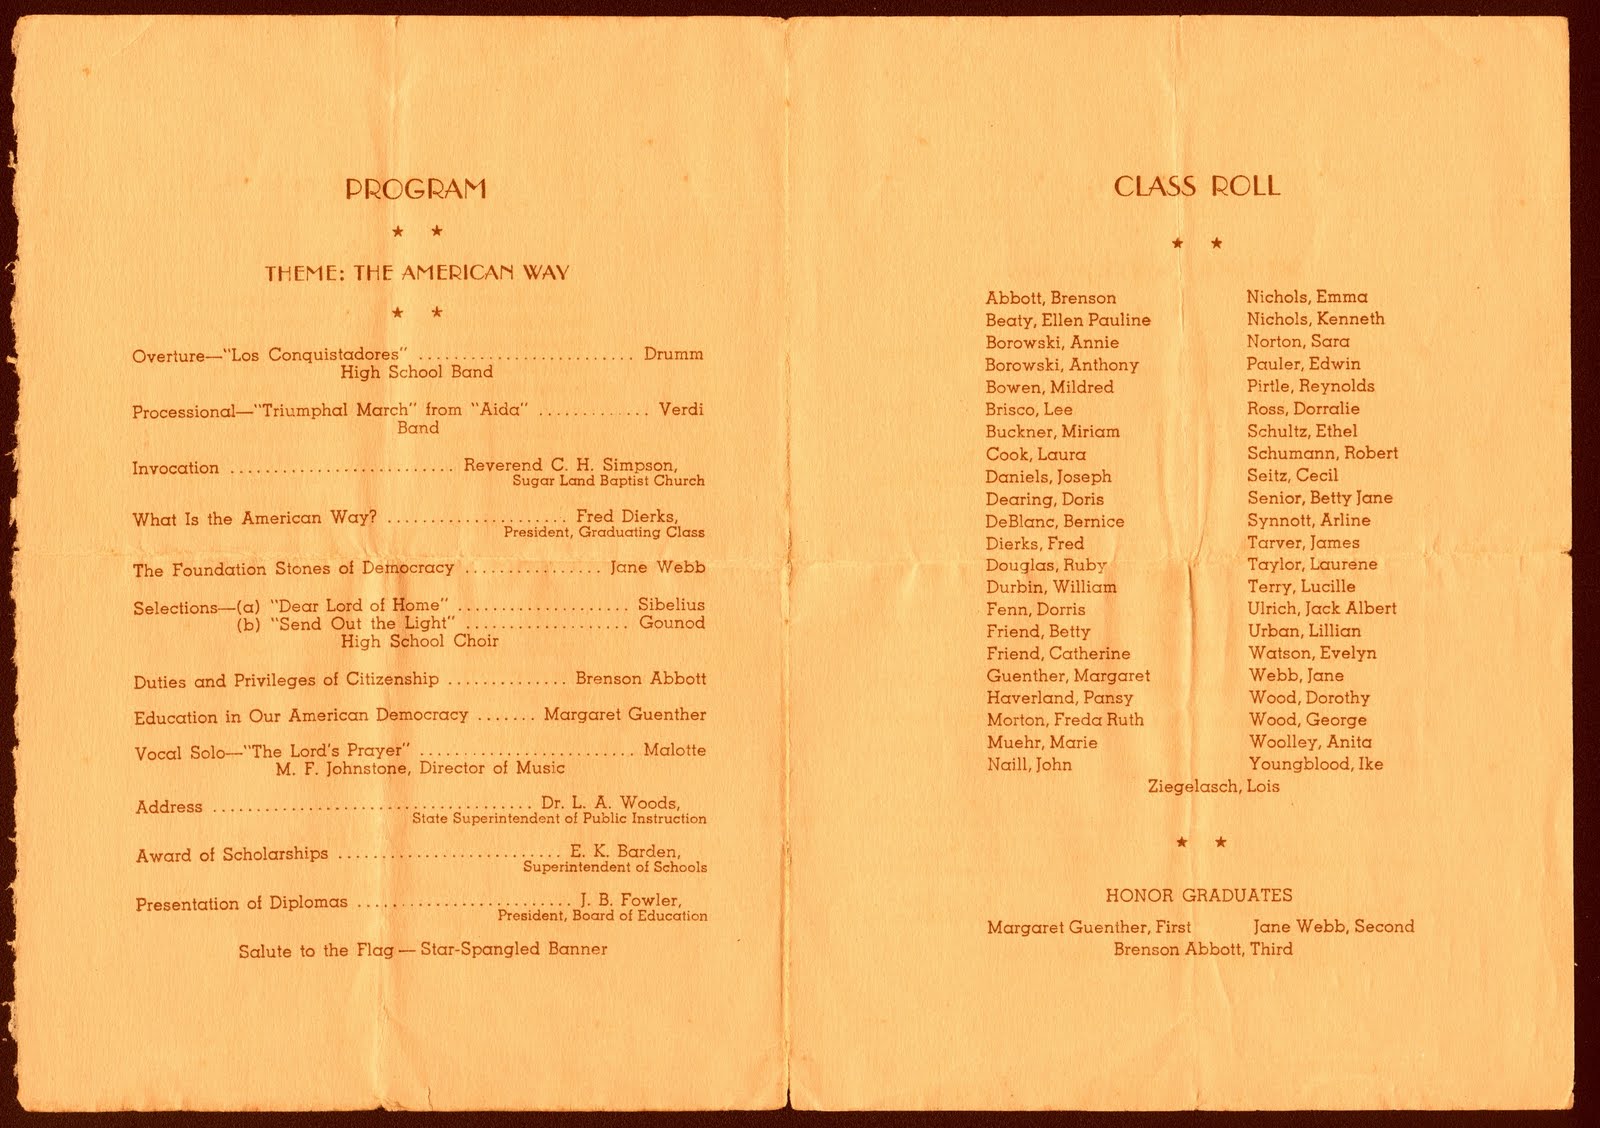 PROGRAM
★ ★
THEME: THE AMERICAN WAY
★ ★
Overture—"Los Conquistadores" ........................ Drumm
High School Band
Processional—"Triumphal March" from "Aida" ............. Verdi
Band
Invocation ......................... Reverend C. H. Simpson,
Sugar Land Baptist Church
What Is the American Way? .................... Fred Dierks,
President, Graduating Class
The Foundation Stones of Democracy ................ Jane Webb
Selections—(a) "Dear Lord of Home" .................... Sibelius
(b) "Send Out the Light" ................... Gounod
High School Choir
Duties and Privileges of Citizenship .............. Brenson Abbott
Education in Our American Democracy ....... Margaret Guenther
Vocal Solo—"The Lord's Prayer" ........................ Malotte
M. F. Johnstone, Director of Music
Address ................................... Dr. L. A. Woods,
State Superintendent of Public Instruction
Award of Scholarships ......................... E. K. Barden,
Superintendent of Schools
Presentation of Diplomas ........................ J. B. Fowler,
President, Board of Education
Salute to the Flag — Star-Spangled Banner
CLASS ROLL
★ ★
Abbott, Brenson
Beaty, Ellen Pauline
Borowski, Annie
Borowski, Anthony
Bowen, Mildred
Brisco, Lee
Buckner, Miriam
Cook, Laura
Daniels, Joseph
Dearing, Doris
DeBlanc, Bernice
Dierks, Fred
Douglas, Ruby
Durbin, William
Fenn, Dorris
Friend, Betty
Friend, Catherine
Guenther, Margaret
Haverland, Pansy
Morton, Freda Ruth
Muehr, Marie
Naill, John
Nichols, Emma
Nichols, Kenneth
Norton, Sara
Pauler, Edwin
Pirtle, Reynolds
Ross, Dorralie
Schultz, Ethel
Schumann, Robert
Seitz, Cecil
Senior, Betty Jane
Synnott, Arline
Tarver, James
Taylor, Laurene
Terry, Lucille
Ulrich, Jack Albert
Urban, Lillian
Watson, Evelyn
Webb, Jane
Wood, Dorothy
Wood, George
Woolley, Anita
Youngblood, Ike
Ziegelasch, Lois
★ ★
HONOR GRADUATES
Margaret Guenther, First Jane Webb, Second
Brenson Abbott, Third